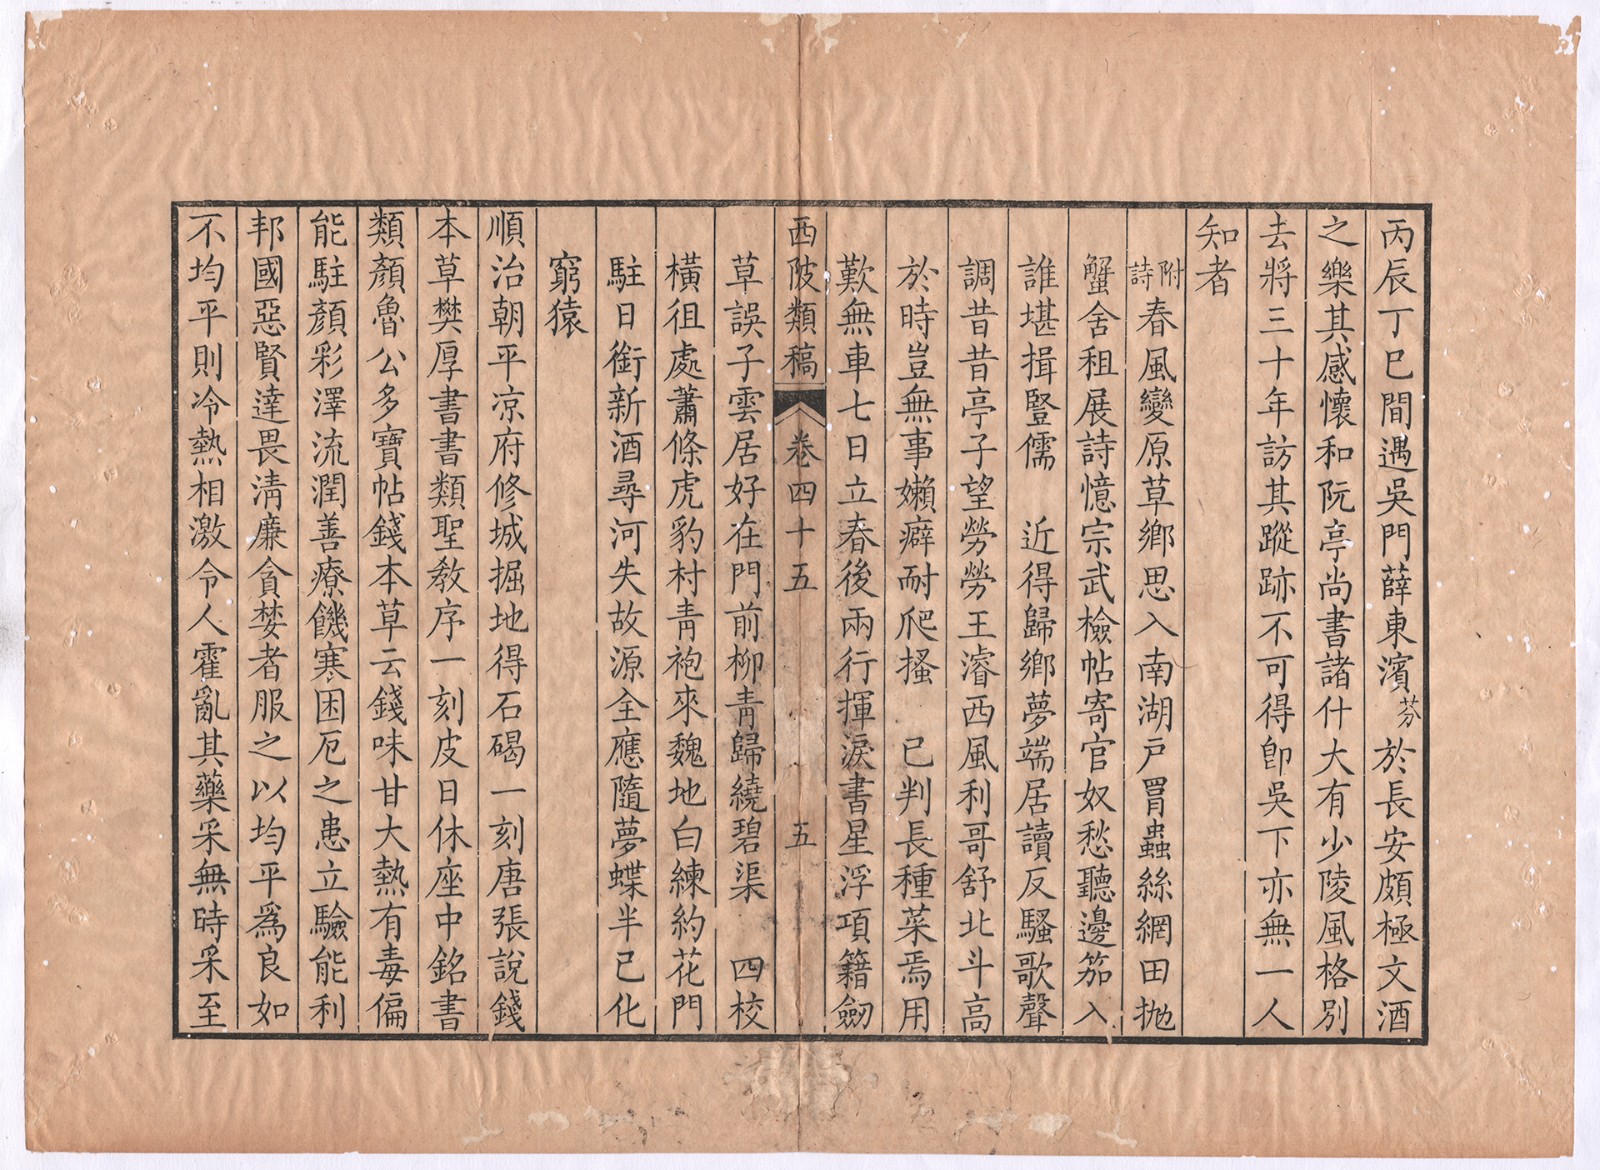 丙辰丁巳間遇吳門薛東濱芬於長安頗極文酒
之樂其感懷和阮亭尚書諸什大有少陵風格別
去將三十年訪其蹤跡不可得卽吳下亦無一人
知者
附詩春風變原草鄉思入南湖戸罥蟲絲網田抛
蟹舍租展詩憶宗武檢帖寄官奴愁聽邊笳入
誰堪揖豎儒　近得歸鄉夢端居讀反騷歌聲
調昔昔亭子望勞勞王濬西風利哥舒北斗高
於時豈無事嬾癖耐爬搔　已判長種菜焉用
歎無車七日立春後兩行揮淚書星浮項籍劒
西陂類稿　卷四十五　五
草誤子雲居好在門前柳靑歸繞碧渠　四校
橫徂處蕭條虎豹村靑袍來魏地白練約花門
駐日銜新酒尋河失故源全應隨夢蝶半已化
窮猿
順治朝平凉府修城掘地得石碣一刻唐張說錢
本草樊厚書書類聖敎序一刻皮日休座中銘書
類顏魯公多寶帖錢本草云錢味甘大熱有毒偏
能駐顏彩澤流潤善療饑寒困厄之患立驗能利
邦國惡賢達畏淸廉貪婪者服之以均平爲良如
不均平則冷熱相激令人霍亂其藥采無時采至